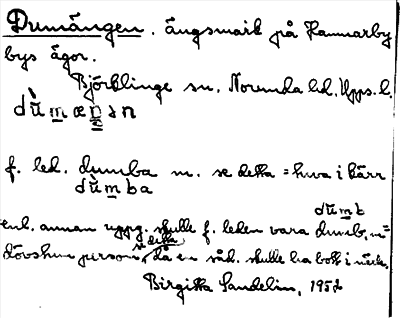 Dumängen. ängsmark på Hammarby
bys ägor.
Björklinge sn. Norunda hd, Upps. l.
dùmæŋən
f. led. dumba m. se detta = hwa i kärr
dùmba
dumb
enl. annan uppg. skulle f. leden vara dumb, m=
se detta
dövstum person, då en såd. skulle ha bott i närh.
Birgitta Sandelin, 1952